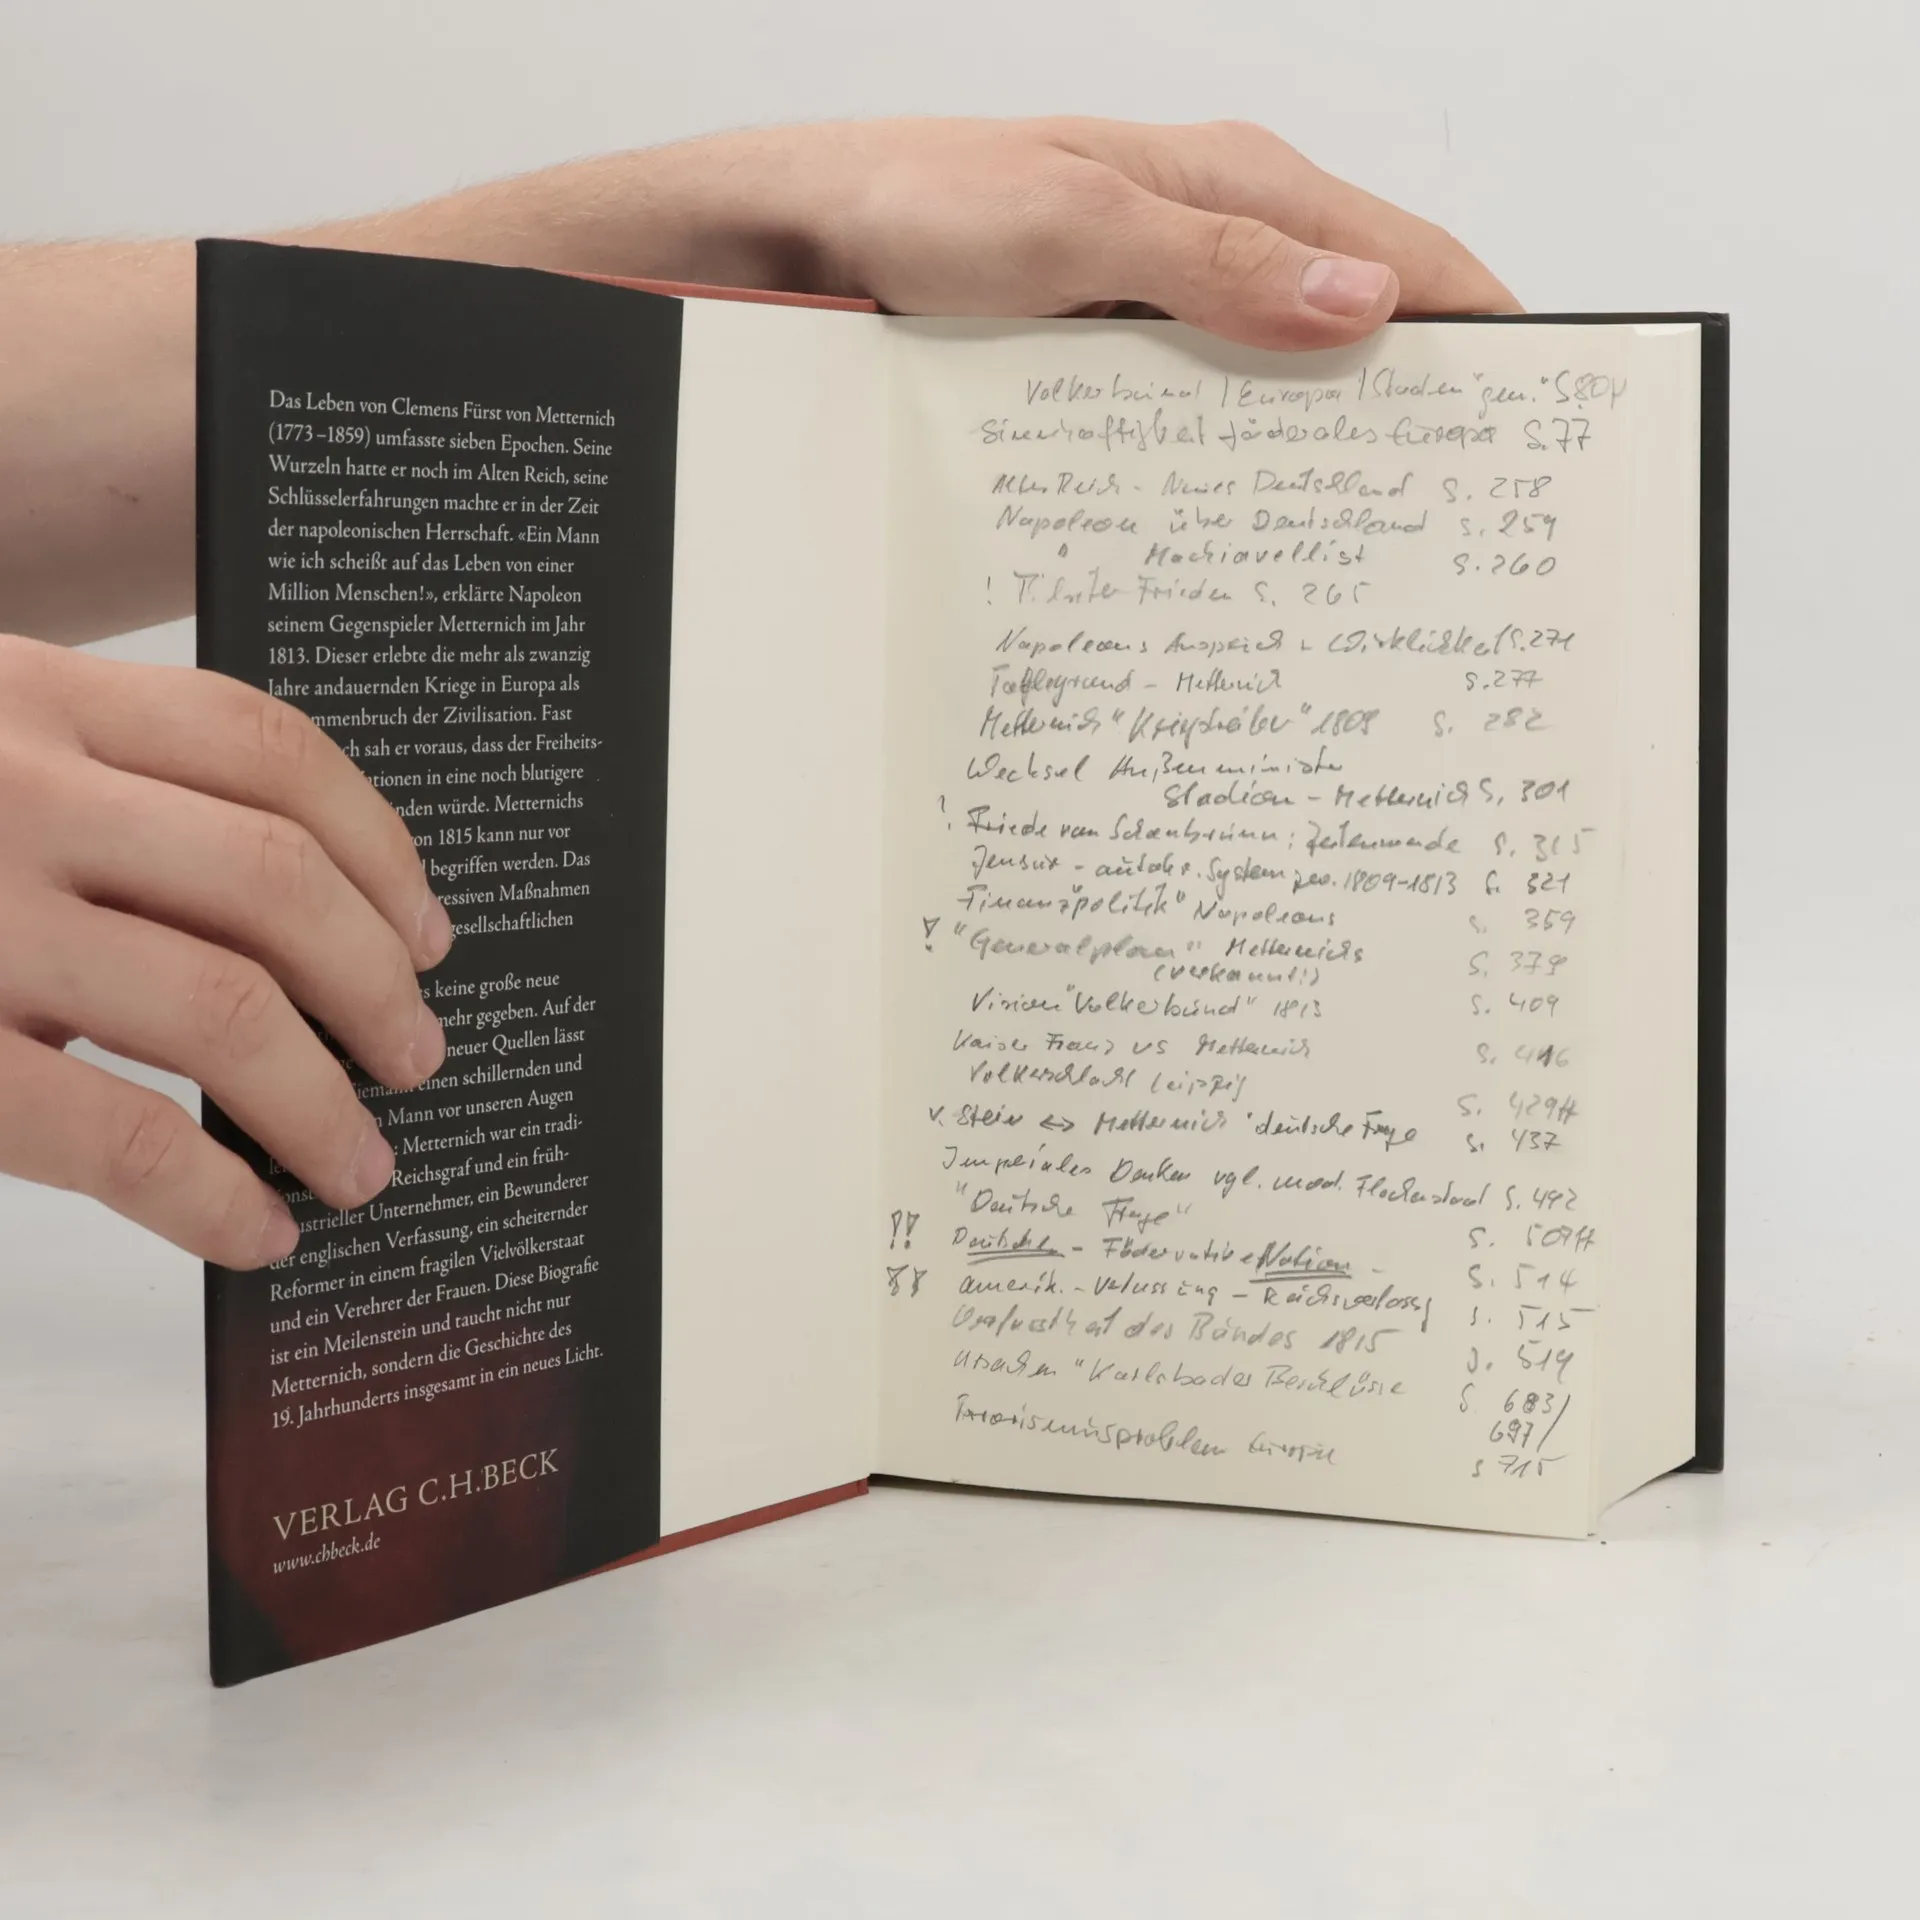 Das Leben von Clemens Fürst von Metternich
(1773–1859) umfasste sieben Epochen. Seine
Wurzeln hatte er noch im Alten Reich, seine
Schlüsselerfahrungen machte er in der Zeit
der napoleonischen Herrschaft. «Ein Mann
wie ich scheißt auf das Leben von einer
Million Menschen!», erklärte Napoleon
seinem Gegenspieler Metternich im Jahr
1813. Dieser erlebte die mehr als zwanzig
Jahre andauernden Kriege in Europa als
mmenbruch der Zivilisation. Fast
ch sah er voraus, dass der Freiheits-
ationen in eine noch blutigere
nden würde. Metternichs
on 1815 kann nur vor
begriffen werden. Das
ressiven Maßnahmen
gesellschaftlichen
s keine große neue
mehr gegeben. Auf der
neuer Quellen lässt
iemann einen schillernden und
n Mann vor unseren Augen
: Metternich war ein tradi-
Reichsgraf und ein früh-
ustrieller Unternehmer, ein Bewunderer
der englischen Verfassung, ein scheiternder
Reformer in einem fragilen Vielvölkerstaat
und ein Verehrer der Frauen. Diese Biografie
ist ein Meilenstein und taucht nicht nur
Metternich, sondern die Geschichte des
19. Jahrhunderts insgesamt in ein neues Licht.
VERLAG C.H.BECK
www.chbeck.de
Völkerbund / Europa /
Sinnhaftigkeit föderales Europa S. 77
Altes Reich - Neues Deutschland S. 258
Napoleon über Deutschland S. 259
" Machiavellist S. 260
! Tilsiter Frieden S. 265
Napoleons Anspruch + Wirklichkeit S. 271
Talleyrand - Metternich S. 277
Metternich "Kriegstreiber" 1809 S. 282
Wechsel Außenminister
Stadion - Metternich S. 301
! Friede von Schönbrunn: Zeitenwende S. 315
Zensur - autokr. System 1809-1813 S. 321
"Finanzpolitik" Napoleons S. 359
! "Generalplan" Metternichs S. 379
(verkannt!)
Vision "Völkerbund" 1813 S. 409
Kaiser Franz vs Metternich S. 416
Völkerschlacht Leipzig S. 429ff
v. Stein <-> Metternich "deutsche Frage S. 437
Imperiales Denken vgl. mod. S. 492
"Deutsche Frage" S. 509ff
!! Deutsche - Föderative Nation - S. 514
amerik. - Verfassung - Reichsverfassg S. 515
des Bundes 1815 S. 519
Ursachen "Karlsbader Beschlüsse S. 683/
697/
Terrorismusproblem Europa S 715